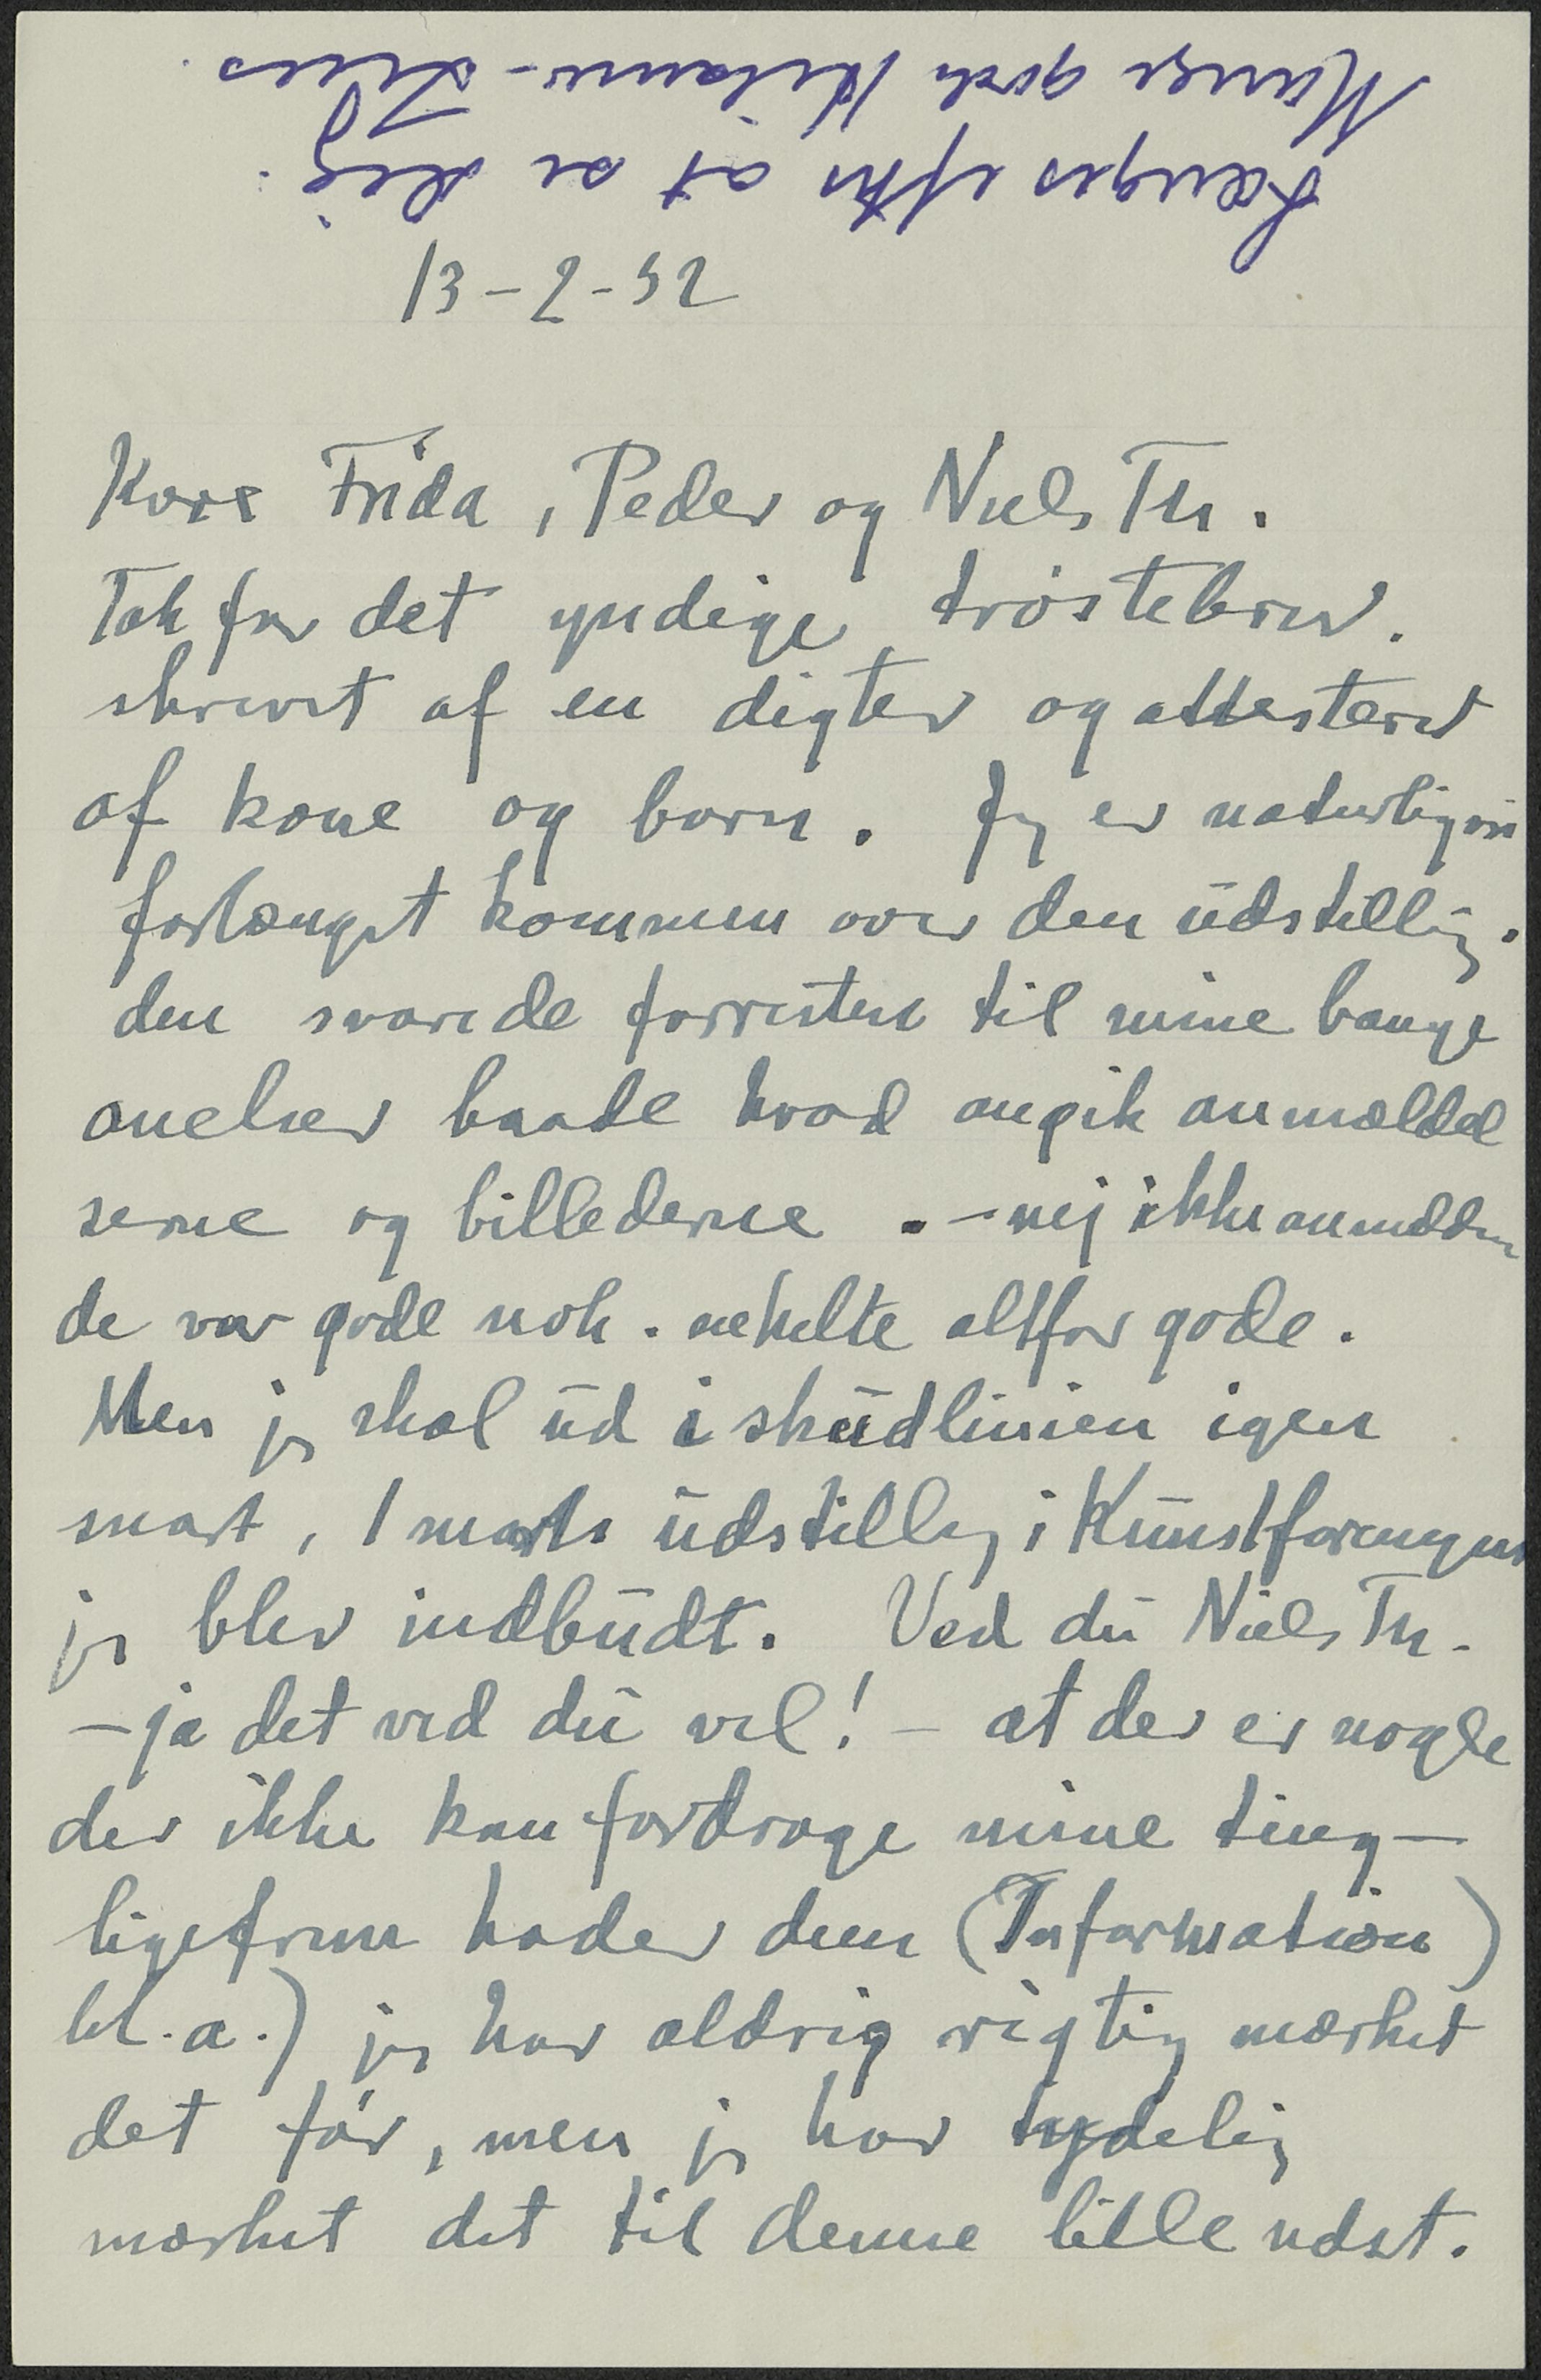 Længes efter at se dig.
Mange gode hilsener - Lises
13-2-52
Kære Frida, Peder og Niels Th.
Tak for det yndige trøstebrev.
skrevet af en digter og attesteret
af kone og barn. Jeg er naturligvis
forlængst kommen over den udstilling.
den svarede forresten til mine bange
anelser baade hvad angik anmeldel
serne og billederne. - nej ikke anmeldern
de var gode nok. enkelte altfor gode.
Men jeg skal ud i skudlinien igen
snart, 1 marts udstilling i Kunstforeningen
jeg blev indbudt. Ved du Niels Th.
- ja det ved du vel! - at der er nogle
der ikke kan fordrage mine ting -
ligefrem hader dem (Information)
bl.a.) jeg har aldrig rigtig mærket
det før, men jeg har tydelig
mærket det til denne lille udst.